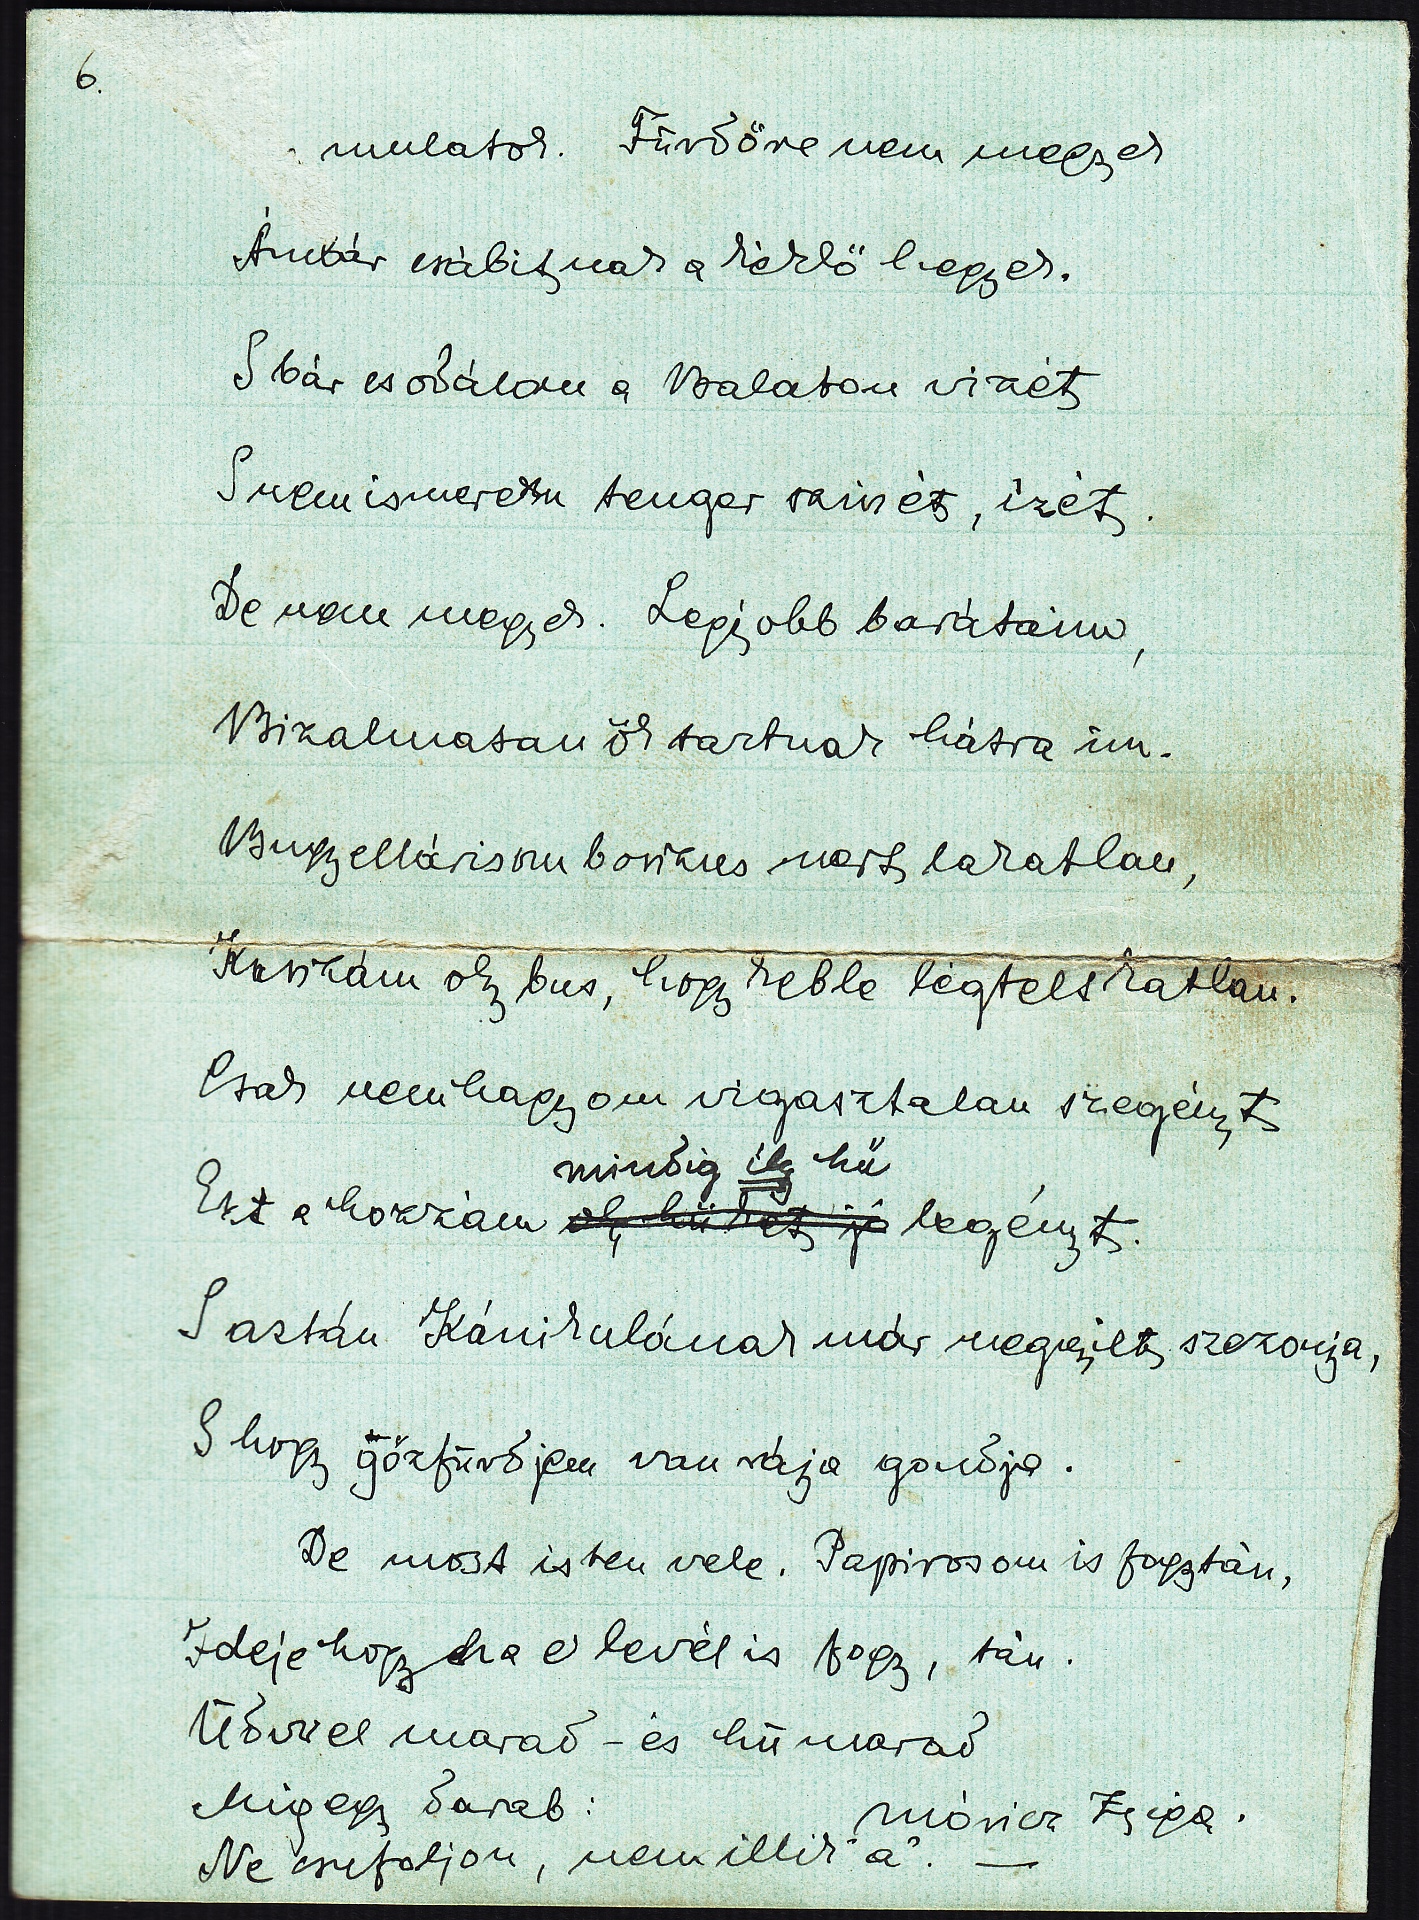 6.
mulatok. Fürdőre nem megyek
Ámbár csábitnak a kéklő hegyek.
S bár csodálom a Balaton vizét
S nem ismerem tenger szinét, izét.
De nem megyek. Legjobb barátaim,
Bizalmasan ők tartnak hátra im.
Bugyellárisom boszus mert lakatlan,
Kuszkám oly bus, hogy keble légtelt katlan.
Csak nem hagyom vigasztalan szegényt
mindig ily hű
Ezt a hozzám oly hűket jó legényt.
S aztán Kánikulának már megnyilt szezonja,
S hogy gőzfürdjem van rája gondja.
De most isten vele. Papirosom is fogytán,
Ideje hogy ha e levél is fogy, tán.
Üdvvel marad – és hű marad
Mig egy darab:
Móricz Zsiga.
Ne csufoljon, nem illik "a". —